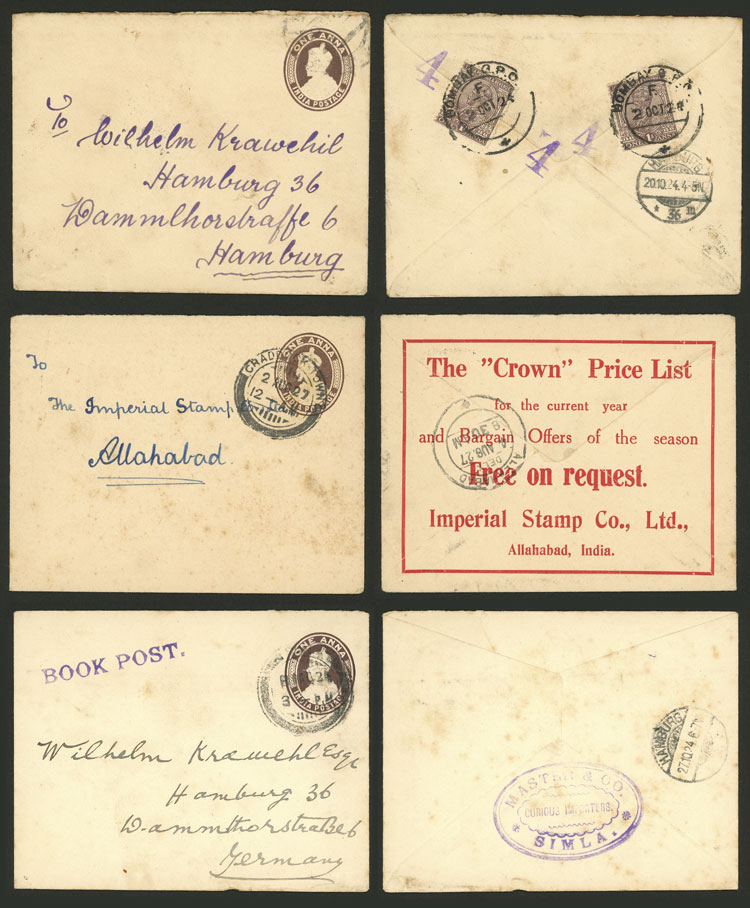 ONE ANNA
INDIA POSTAGE
To
Wilhelm Krawehil
Hamburg 36
Dammlhorstraffe 6
Hamburg
4
BOMBAY G.P.O.
F.
2 OCT 24
4
4
BOMBAY G.P.O.
F.
2 OCT 24
HAMBURG
20.10.24.4-5N.
* 36 m
ONE ANNA
INDIA POSTAGE
To
The Imperial Stamp
Allahabad.
The "Crown" Price List
for the current year
and Bargain Offers of the season
Free on request.
Imperial Stamp Co., Ltd.,
Allahabad, India.
AUG.27
8.30 AM
BOOK POST.
ONE ANNA
INDIA POSTAGE
Wilhelm Krawehl Esqr
Hamburg 36
Dammthorstraße 6
Germany
HAMBURG
27.10.24.6-7
MASTER & CO.
CURIOUS IMPORTERS.
* SIMLA. *